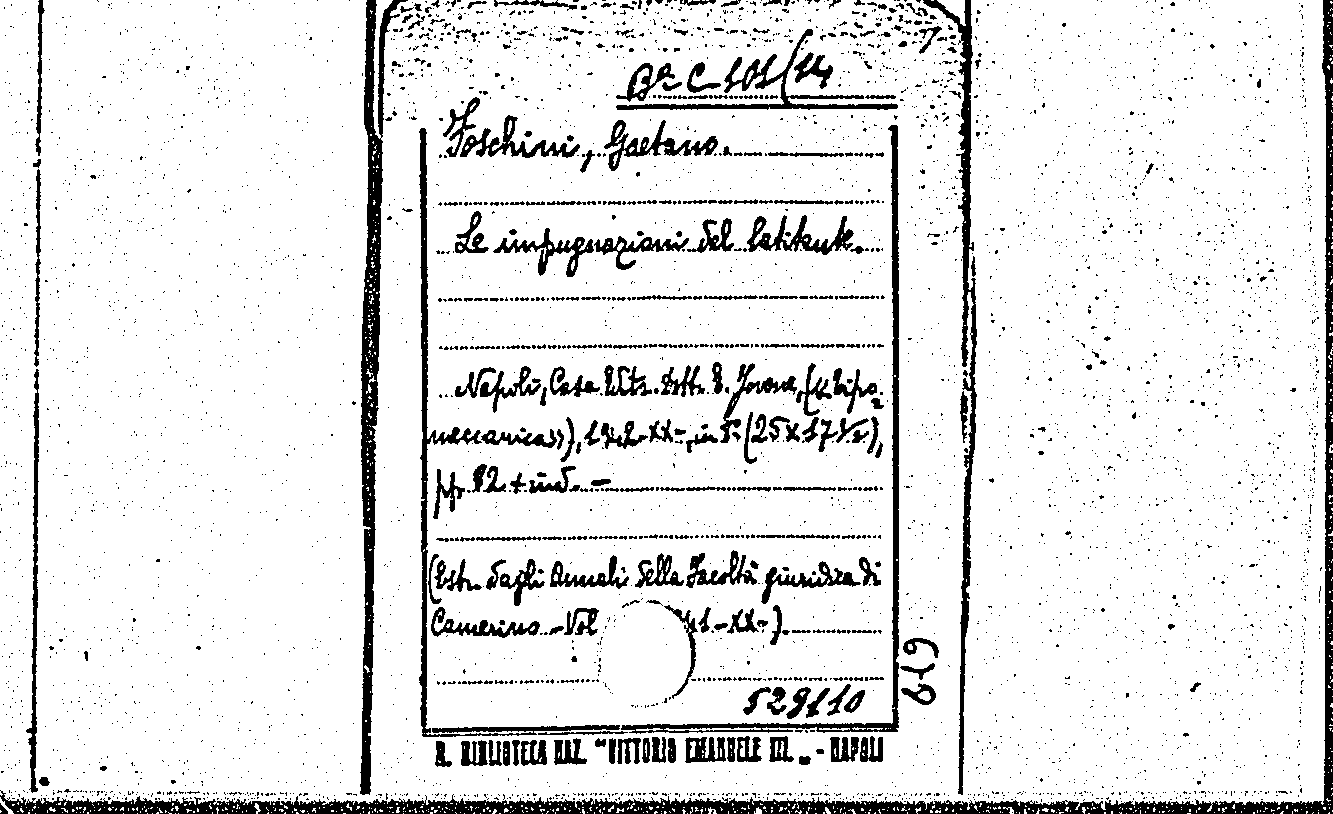 Bᵃ C 101(14
Foschini, Gaetano.
Le impugnazioni del latitante.
Napoli, Casa Edit. Dott. E. Jovene, («Tipo=
meccanica»), 1942-XX-, in 8° (25x17½),
pp. 82 + ind. —
(Estr. dagli Annali della Facoltà giuridica di
Camerino - Vol 41-XX-).
529110
619
R. BIBLIOTECA NAZ. "VITTORIO EMANUELE III„ - NAPOLI